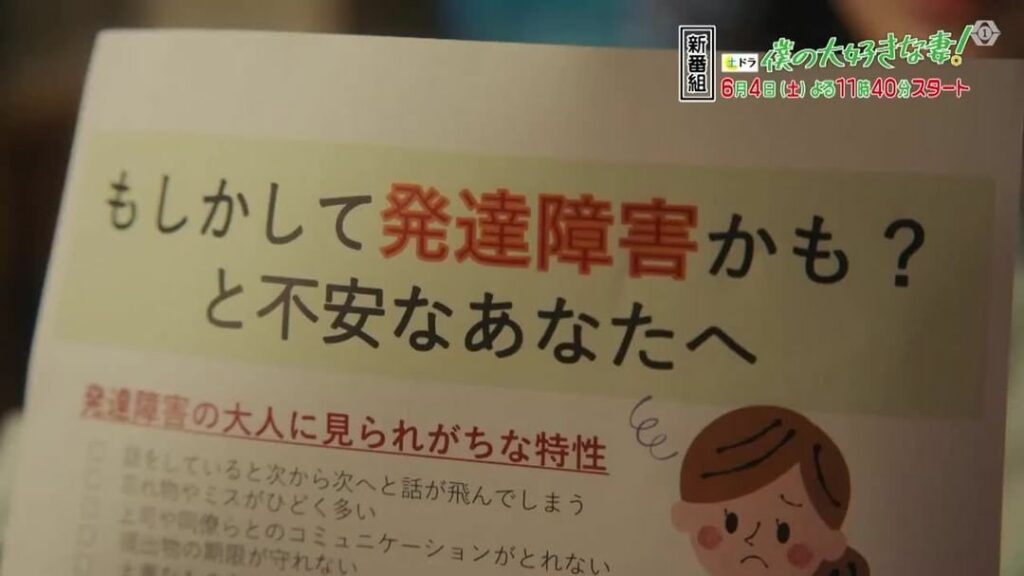 新番組
土ドラ 僕の大好きな妻!
6月4日(土)よる11時40分スタート
もしかして発達障害かも？
と不安なあなたへ
発達障害の大人に見られがちな特性
話をしていると次から次へと話が飛んでしまう
忘れ物やミスがひどく多い
上司や同僚らとのコミュニケーションがとれない
提出物の期限が守れない